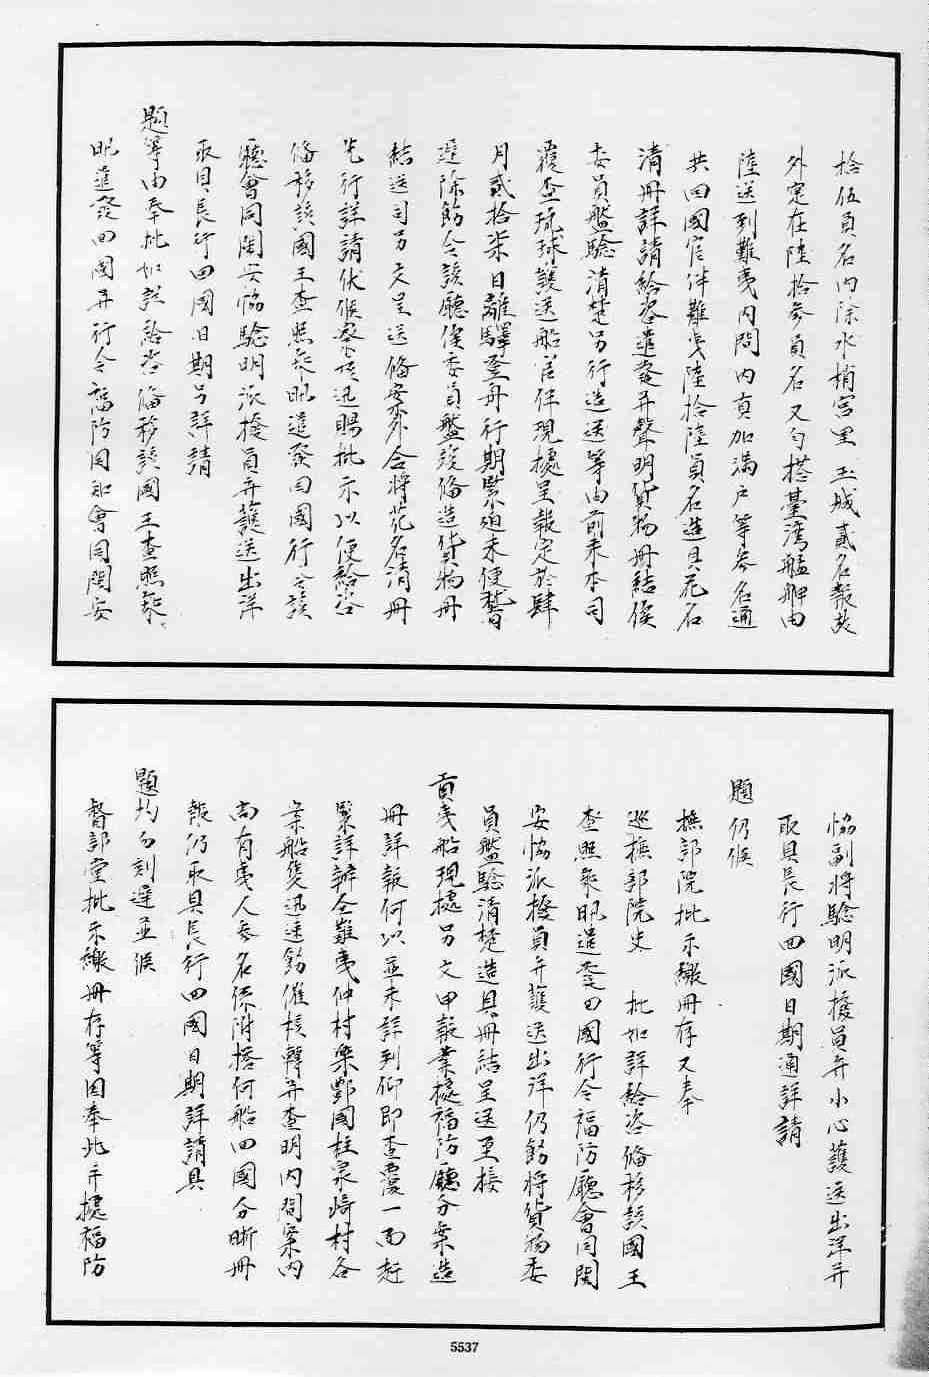 拾伍員名內除水梢宮里　玉城貳名報故
外定在陸拾參員名又勻搭臺灣艋舺由
陸送到難夷內間內真加滿戶等參名通
共回國官伴難夷陸拾陸員名造具花名
清冊詳請給咨遣發并聲明貨物冊結俟
委員盤驗清楚另行造送等由前來本司
覆查琉球護送船官伴現據呈報定於肆
月貳拾柒日離驛登舟行期緊迫未便稽
遲除飭令該廳俟委員盤驗俻造貨物冊
結送司另文呈送俻案外合將花名清冊
先行詳請伏候察核迅賜批示以便給咨
俻移該國王查照乘汛遣發回國行令該
廳會同閩安協驗明派撥員弁護送出洋
取具長行回國日期另詳請
題等由奉批如詳給咨俻移該國王查照乘
汛遣發回國弁行令福防同知會同閩安
協副將驗明派撥員弁小心護送出洋并
取具長行回國日期通詳請
題仍候
撫部院批示繳冊存又奉
巡撫部院史　批如詳給咨俻移該國王
查照乘汛遣發回國行令福防廳會同閩
安協派撥員弁護送出洋仍飭將貨物委
員盤驗清楚造具冊結呈送至接
貢夷船現據另文申報業據福防廳分案造
冊詳報何以並未詳到仰即查覆一面赶
緊詳辦全難夷仲村渠鄧國柱泉崎村各
案船隻迅速飭催核轉并查明內間案內
尚有夷人參名係附搭何船回國分晰冊
報仍取具長行回國日期詳請具
題均勿刻遲並候
督部堂批示繳冊存等因奉此并據福防
5537